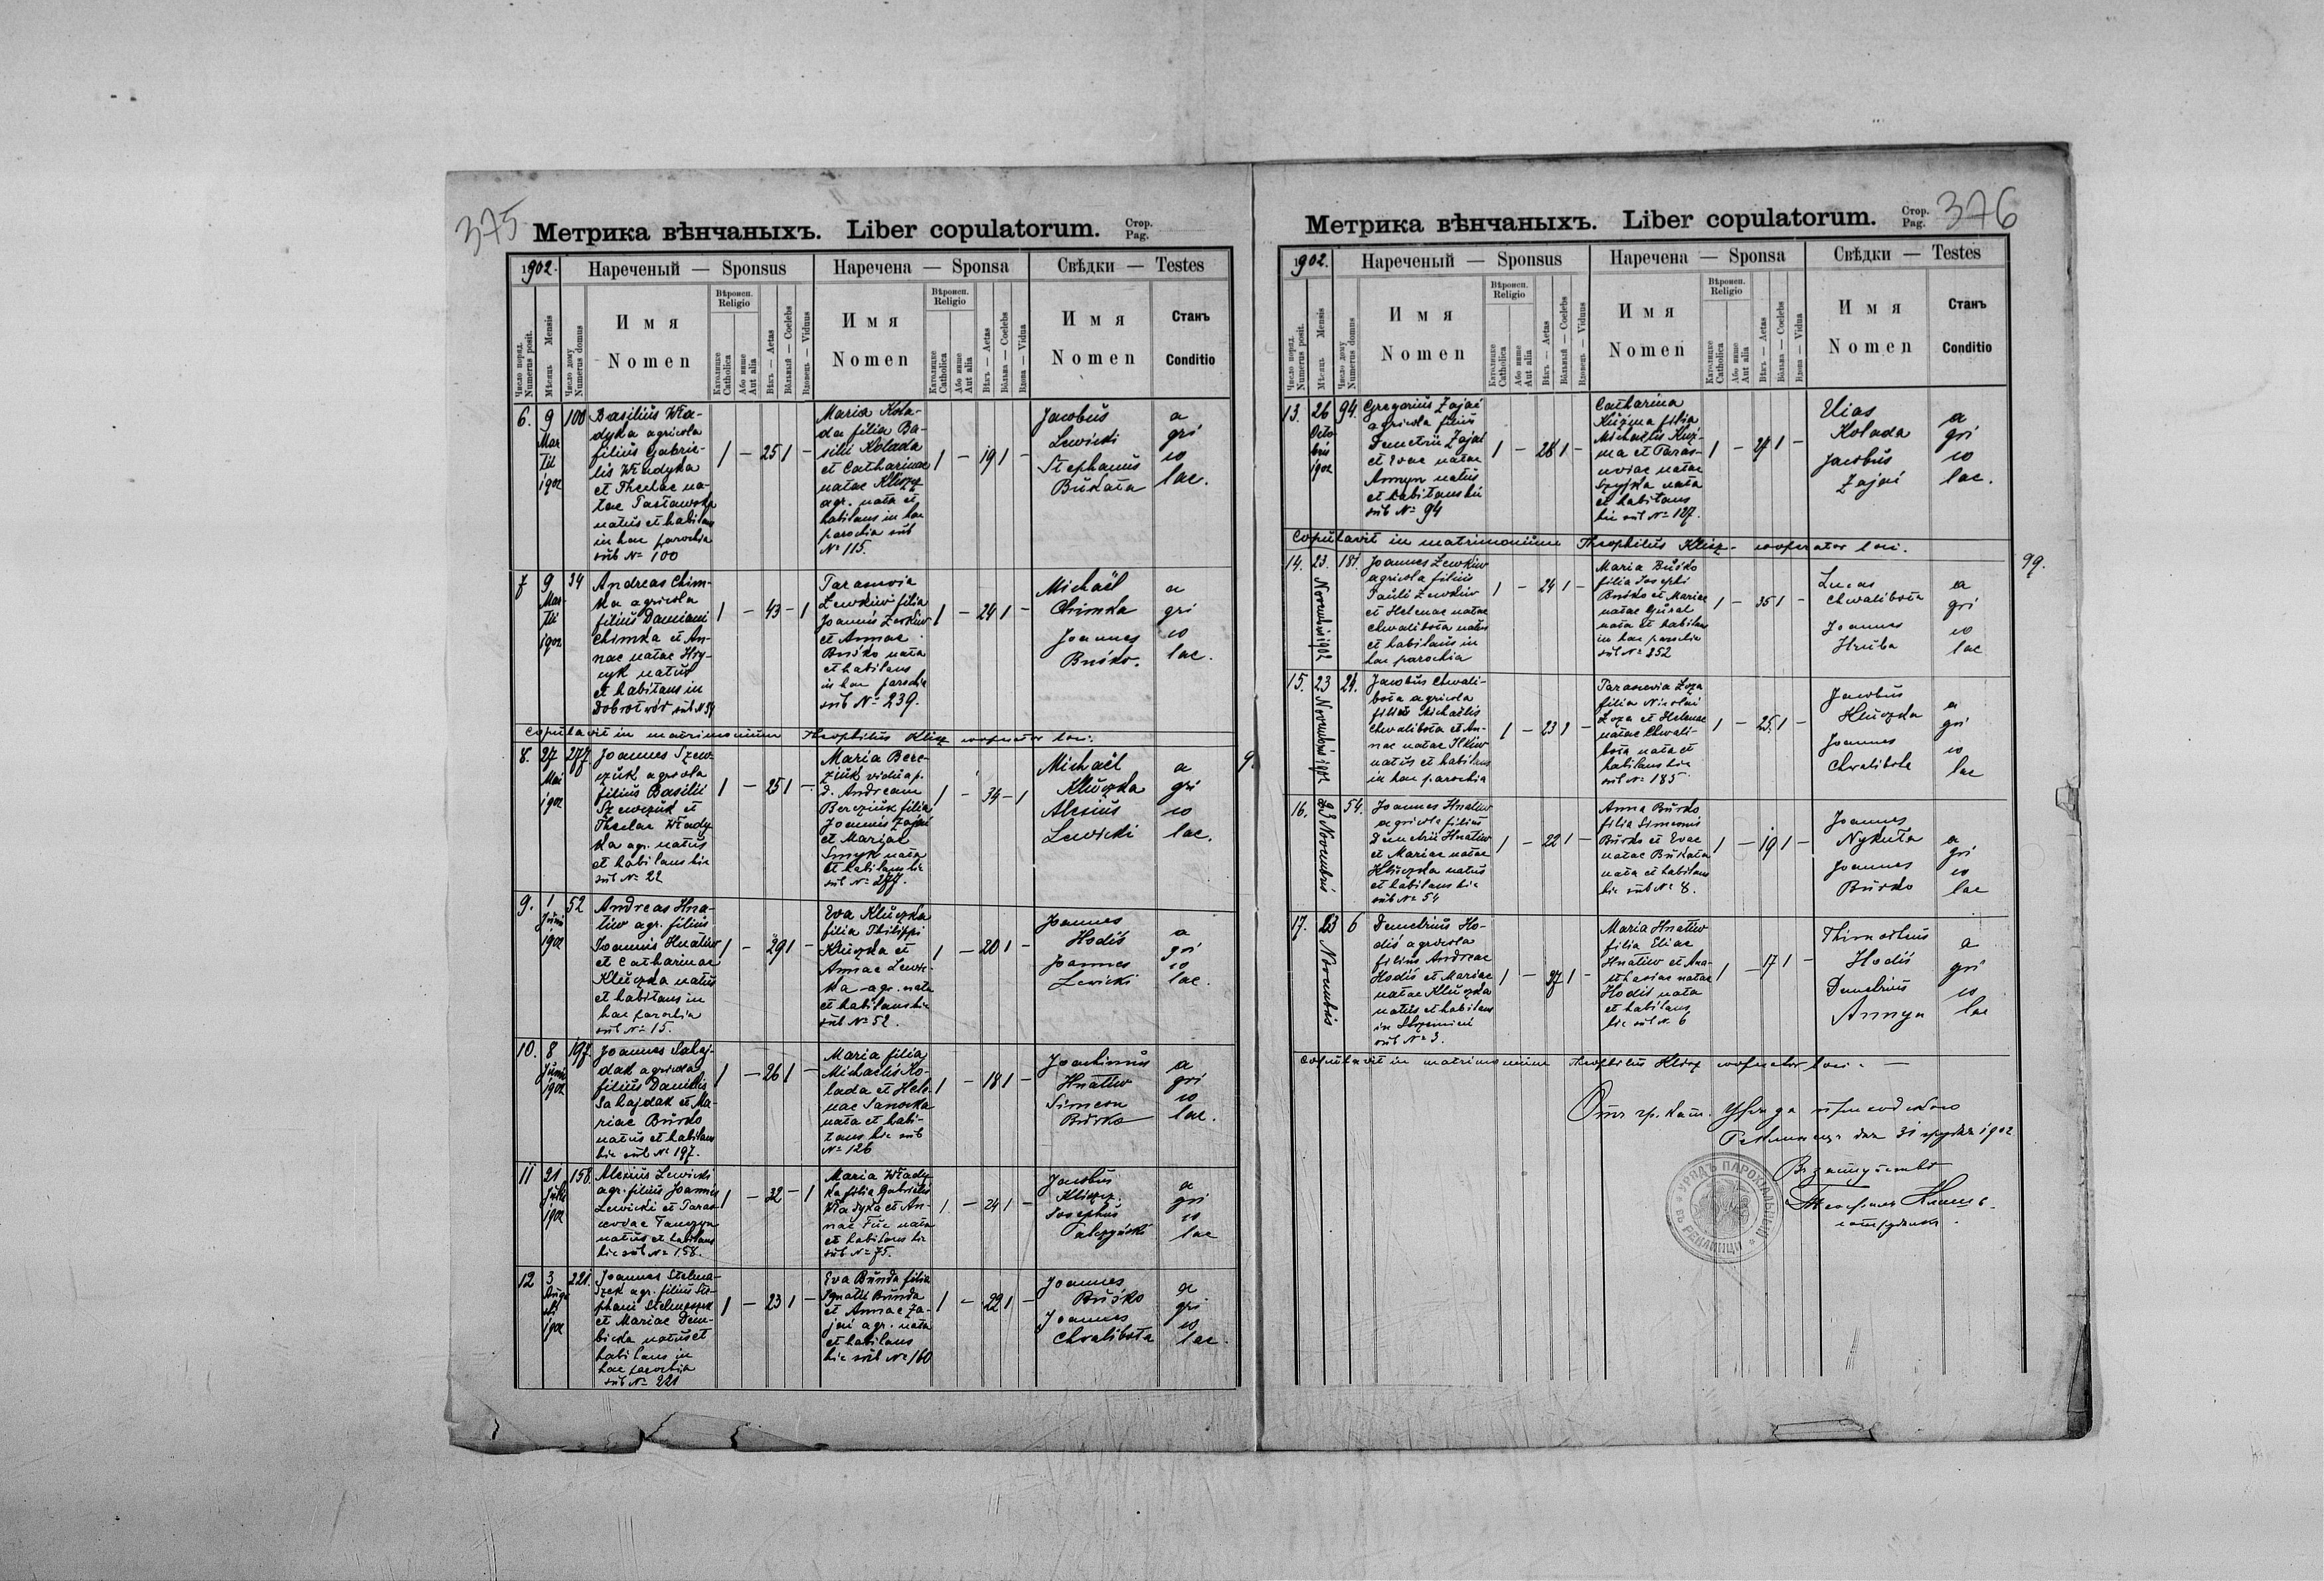 375
Метрика вѣнчаныхъ. Liber copulatorum. Стор. Pag.
1902.
Нареченый — Sponsus
Наречена — Sponsa
Свѣдки — Testes
Число поряд. Numerus posit.
Мѣсяць Mensis
Число дому Numerus domus
Имя
Nomen
Вѣроисп. Religio
Католицке Catholica
Або инше Aut alia
Вѣкъ — Aetas
Вôльный — Coelebs
Вдовець — Viduus
Имя
Nomen
Вѣроисп. Religio
Католицке Catholica
Або инше Aut alia
Вѣкъ — Aetas
Вôльна — Coelebs
Вдова — Vidua
Имя
Nomen
Станъ
Conditio
6. 9 Martii 1902 100
Basilius Wła-
dyka agricola
filius Gabrie-
lis Władyka
et Theclae na-
tae
natus et habitans
in hac parochia
sub № 100
1 — 25 1 —
Maria Kola-
da filia Ba-
silii Kolada
et Catharinae
natae Kliszcz
agr. nata et
habitans in hac
parochia sub
№ 115.
1 — 19 1 —
Jacobus
Lewicki
Stephanus
Bukata
agricolae.
7 9 Martii 1902 34
Andreas Chim-
ka agricola
filius Damiani
Chimka et An-
nae natae Hry-
cyk natus
et habitans in
Dobrotwór sub № 34
1 — 43 — 1
Parascevia
Lewkiw filia
Joannis Lewkiw
et Annae
Buśko nata
et habitans
in hac parochia
sub № 239.
1 — 24 1 —
Michaël
Chimka
Joannes
Buśko.
agricolae.
Copulavit in matrimonium Theophilus Klisz cooperator loci.
8. 27 Mai 1902 277.
Joannes Szew-
czuk agricola
filius Basilii
Szewczuk et
Theclae Włady-
ka agr. natus
et habitans hic
sub № 22
1 — 25 1 —
Maria Bere-
ziuk vidua p.
d. Andream
Bereziuk filia
Joannis Zajac
et Mariae
Smyk nata
et habitans hic
sub № 277.
1 — 34 — 1
Michaël
Kluczka
Alexius
Lewicki
agricolae.
9. 1 Junii 1902 52
Andreas Hna-
tiw agr. filius
Joannis Hnatiw
et Catharinae
Kluczka natus
et habitans in
hac parochia
sub № 15.
1 — 29 1 —
Eva Kluczka
filia Philippi
Kluczka et
Annae Lewic-
ka agr. nata
et habitans hic
sub № 52.
1 — 20 1 —
Joannes
Hodiś
Joannes
Lewicki
agricolae.
10. 8 Junii 1902 197.
Joannes Sahaj-
dak agricola
filius Danielis
Sahajdak et Ma-
riae Burko
natus et habitans
hic sub № 197.
1 — 26 1 —
Maria filia
Michaelis Ko-
lada et Hele-
nae Sanocka
nata et habi-
tans hic sub
№ 126
1 — 18 1 —
Joachimus
Hnatiw
Simeon
Burko
agricolae.
11 21 Julii 1902 158.
Alexius Lewicki
agr. filius Joannis
Lewicki et Paras-
ceviae
natus et habitans
hic sub № 158.
1 — 32 — 1
Maria Włady-
ka filia Gabrielis
Władyka et An-
nae Fuc nata
et habitans hic
sub № 75.
1 — 24 1 —
Jacobus
Kliszcz.
Josephus
agricolae
12 3 Augusti 1902 221.
Joannes Stelma-
szek agr. filius Ste-
phani Stelmaszek
et Mariae Dem-
bicka natus et
habitans in
hac parochia
sub № 221
1 — 23 1 —
Eva Bunda filia
Ignatii Bunda
et Annae Za-
jac agr. nata
et habitans
hic sub № 160
1 — 22 1 —
Joannes
Buśko
Joannes
Chwalibota
agricolae.
376
Метрика вѣнчаныхъ. Liber copulatorum. Стор. Pag.
1902.
Нареченый — Sponsus
Наречена — Sponsa
Свѣдки — Testes
Число поряд. Numerus posit.
Мѣсяць Mensis
Число дому Numerus domus
Имя
Nomen
Вѣроисп. Religio
Католицке Catholica
Або инше Aut alia
Вѣкъ — Aetas
Вôльный — Coelebs
Вдовець — Viduus
Имя
Nomen
Вѣроисп. Religio
Католицке Catholica
Або инше Aut alia
Вѣкъ — Aetas
Вôльна — Coelebs
Вдова — Vidua
Имя
Nomen
Станъ
Conditio
13. 26 Octobris 1902 94.
Gregorius Zajac
agricola filius
Demetrii Zajac
et Evae natae
Annyn natus
et habitans hic
sub № 94
1 — 28 1 —
Catharina
Kuźma filia
Michaelis Kuź-
ma et Paras-
ceviae natae
Szyjka nata
et habitans
hic sub № 127.
1 — 24 1 —
Elias
Kolada
Jacobus
Zajac
agricolae.
Copulavit in matrimonium Theophilus Klisz - cooperator loci.
14. 23. Novembris 1902 181.
Joannes Lewkiw
agricola filius
Pauli Lewkiw
et Helenae natae
Chwalibota natus
et habitans in
hac parochia
1 — 24 1 —
Maria Buśko
filia Josephi
Buśko et Mariae
natae
nata et habitans
in hac parochia
sub № 252
1 — 35 1 —
Lucas
Chwalibota
Joannes
Hruba
agricolae
99.
15. 23 Novembris 1902 24.
Jacobus Chwali-
bota agricola
filius Michaelis
Chwalibota et An-
nae natae Ilkiw
natus et habitans
in hac parochia
1 — 23 1 —
Parascevia Łoza
filia Nicolai
Łoza et Helenae
natae Chwali-
bota nata et
habitans hic
sub № 185
1 — 25 1 —
Jacobus
Kluczka
Joannes
Chwalibota
agricolae
16. 23 Novembris 54.
Joannes Hnatiw
agricola filius
Demetrii Hnatiw
et Mariae natae
Kluczka natus
et habitans hic
sub № 54
1 — 22 1 —
Anna Burko
filia Simeonis
Burko et Evae
natae Bukata
nata et habitans
hic sub № 8.
1 — 19 1 —
Joannes
Nykuta
Joannes
Burko
agricolae
17. 23 Novembris 6
Demetrius Ho-
diś agricola
filius Andreae
Hodiś et Mariae
natae Kluczka
natus et habitans
in
sub № 3.
1 — 27 1 —
Maria Hnatiw
filia Eliae
Hnatiw et Ana-
stasiae natae
Hodiś nata
et habitans
hic sub № 6
1 — 17 1 —
Thimotheus
Hodiś
Demetrius
Annyn
agricolae
Copulavit in matrimonium Theophilus Klisz cooperator loci. —
Отъ гр. кат. Уряда приходского
дня 31 грудня 1902
В заступствѣ
Теофиль Клишъ
сотрудникъ.
УРЯДЪ ПАРОХІЯЛЬНЫЙ